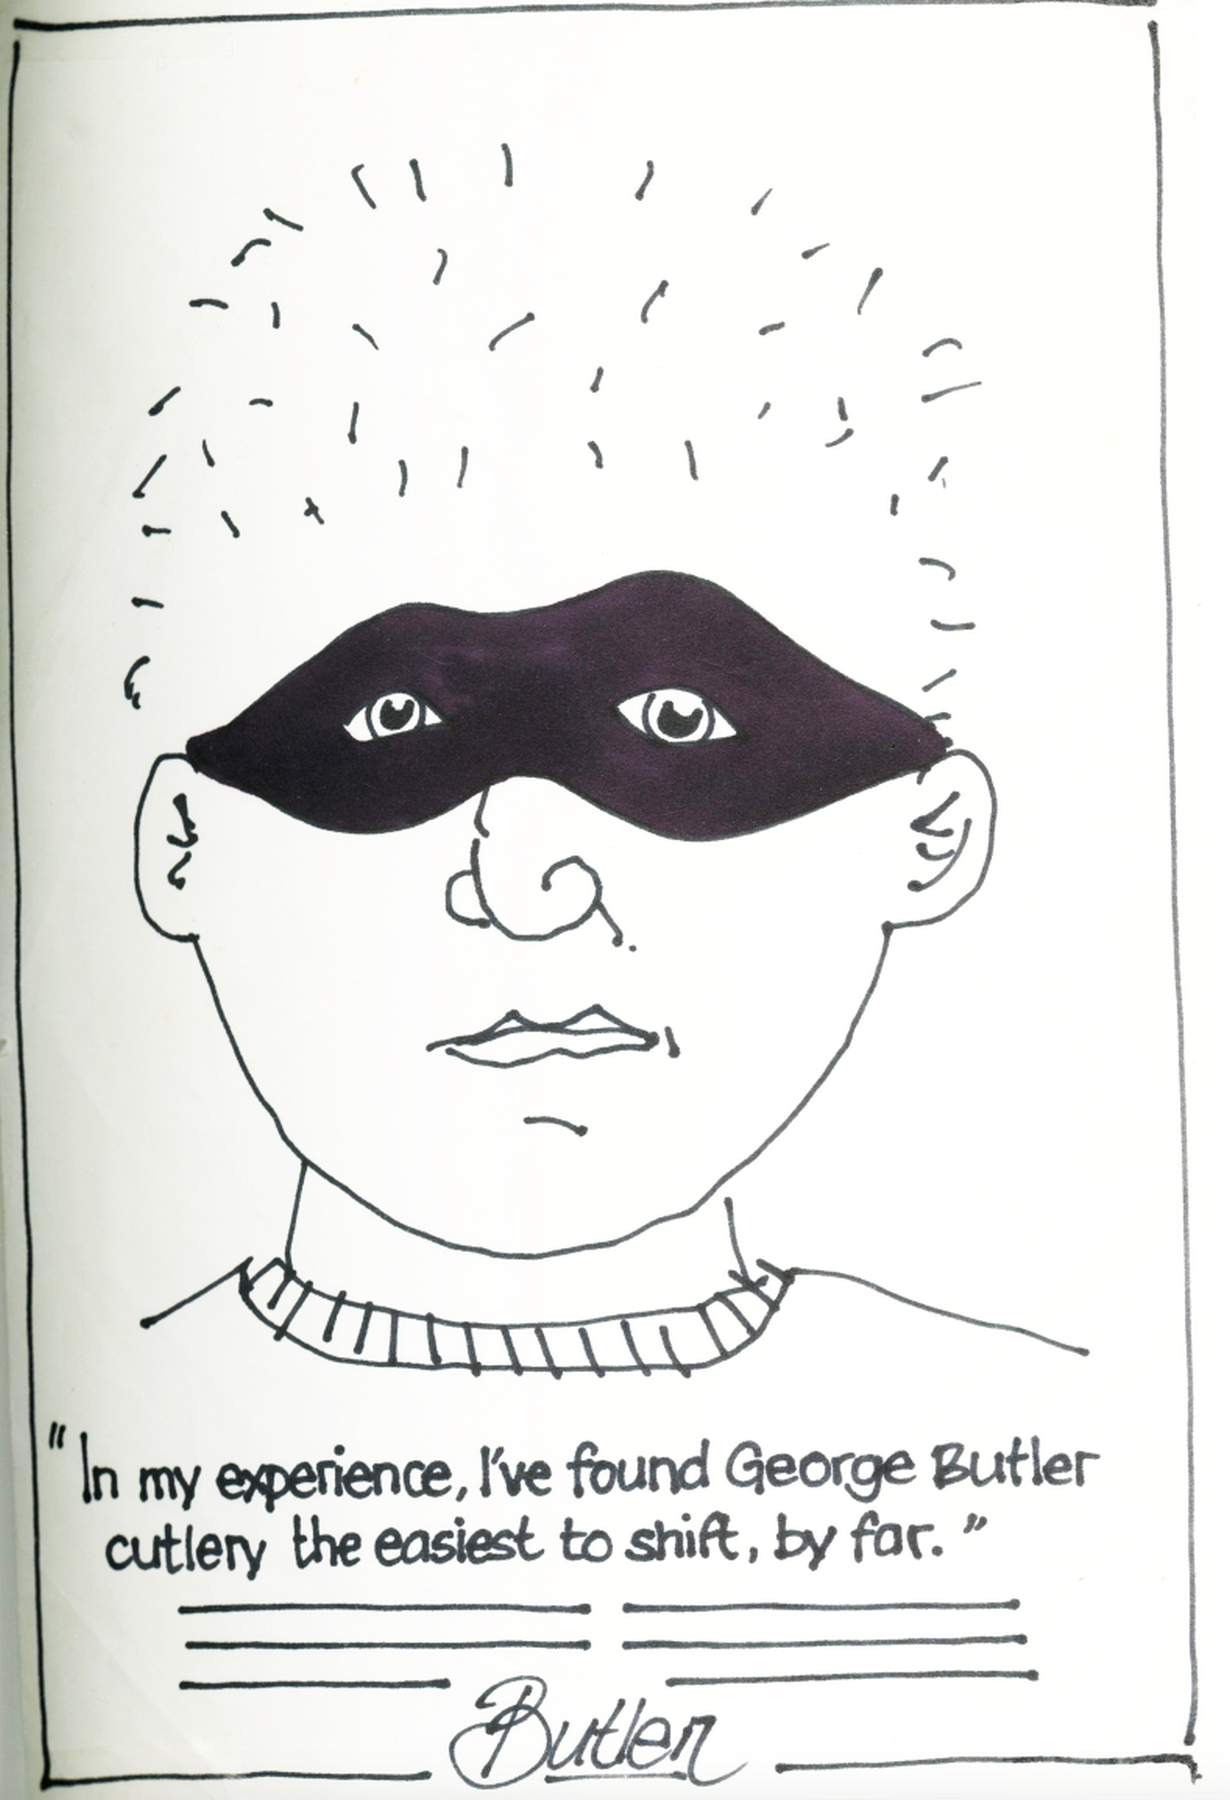 "In my experience, I've found George Butler
cutlery the easiest to shift, by far."
Butler